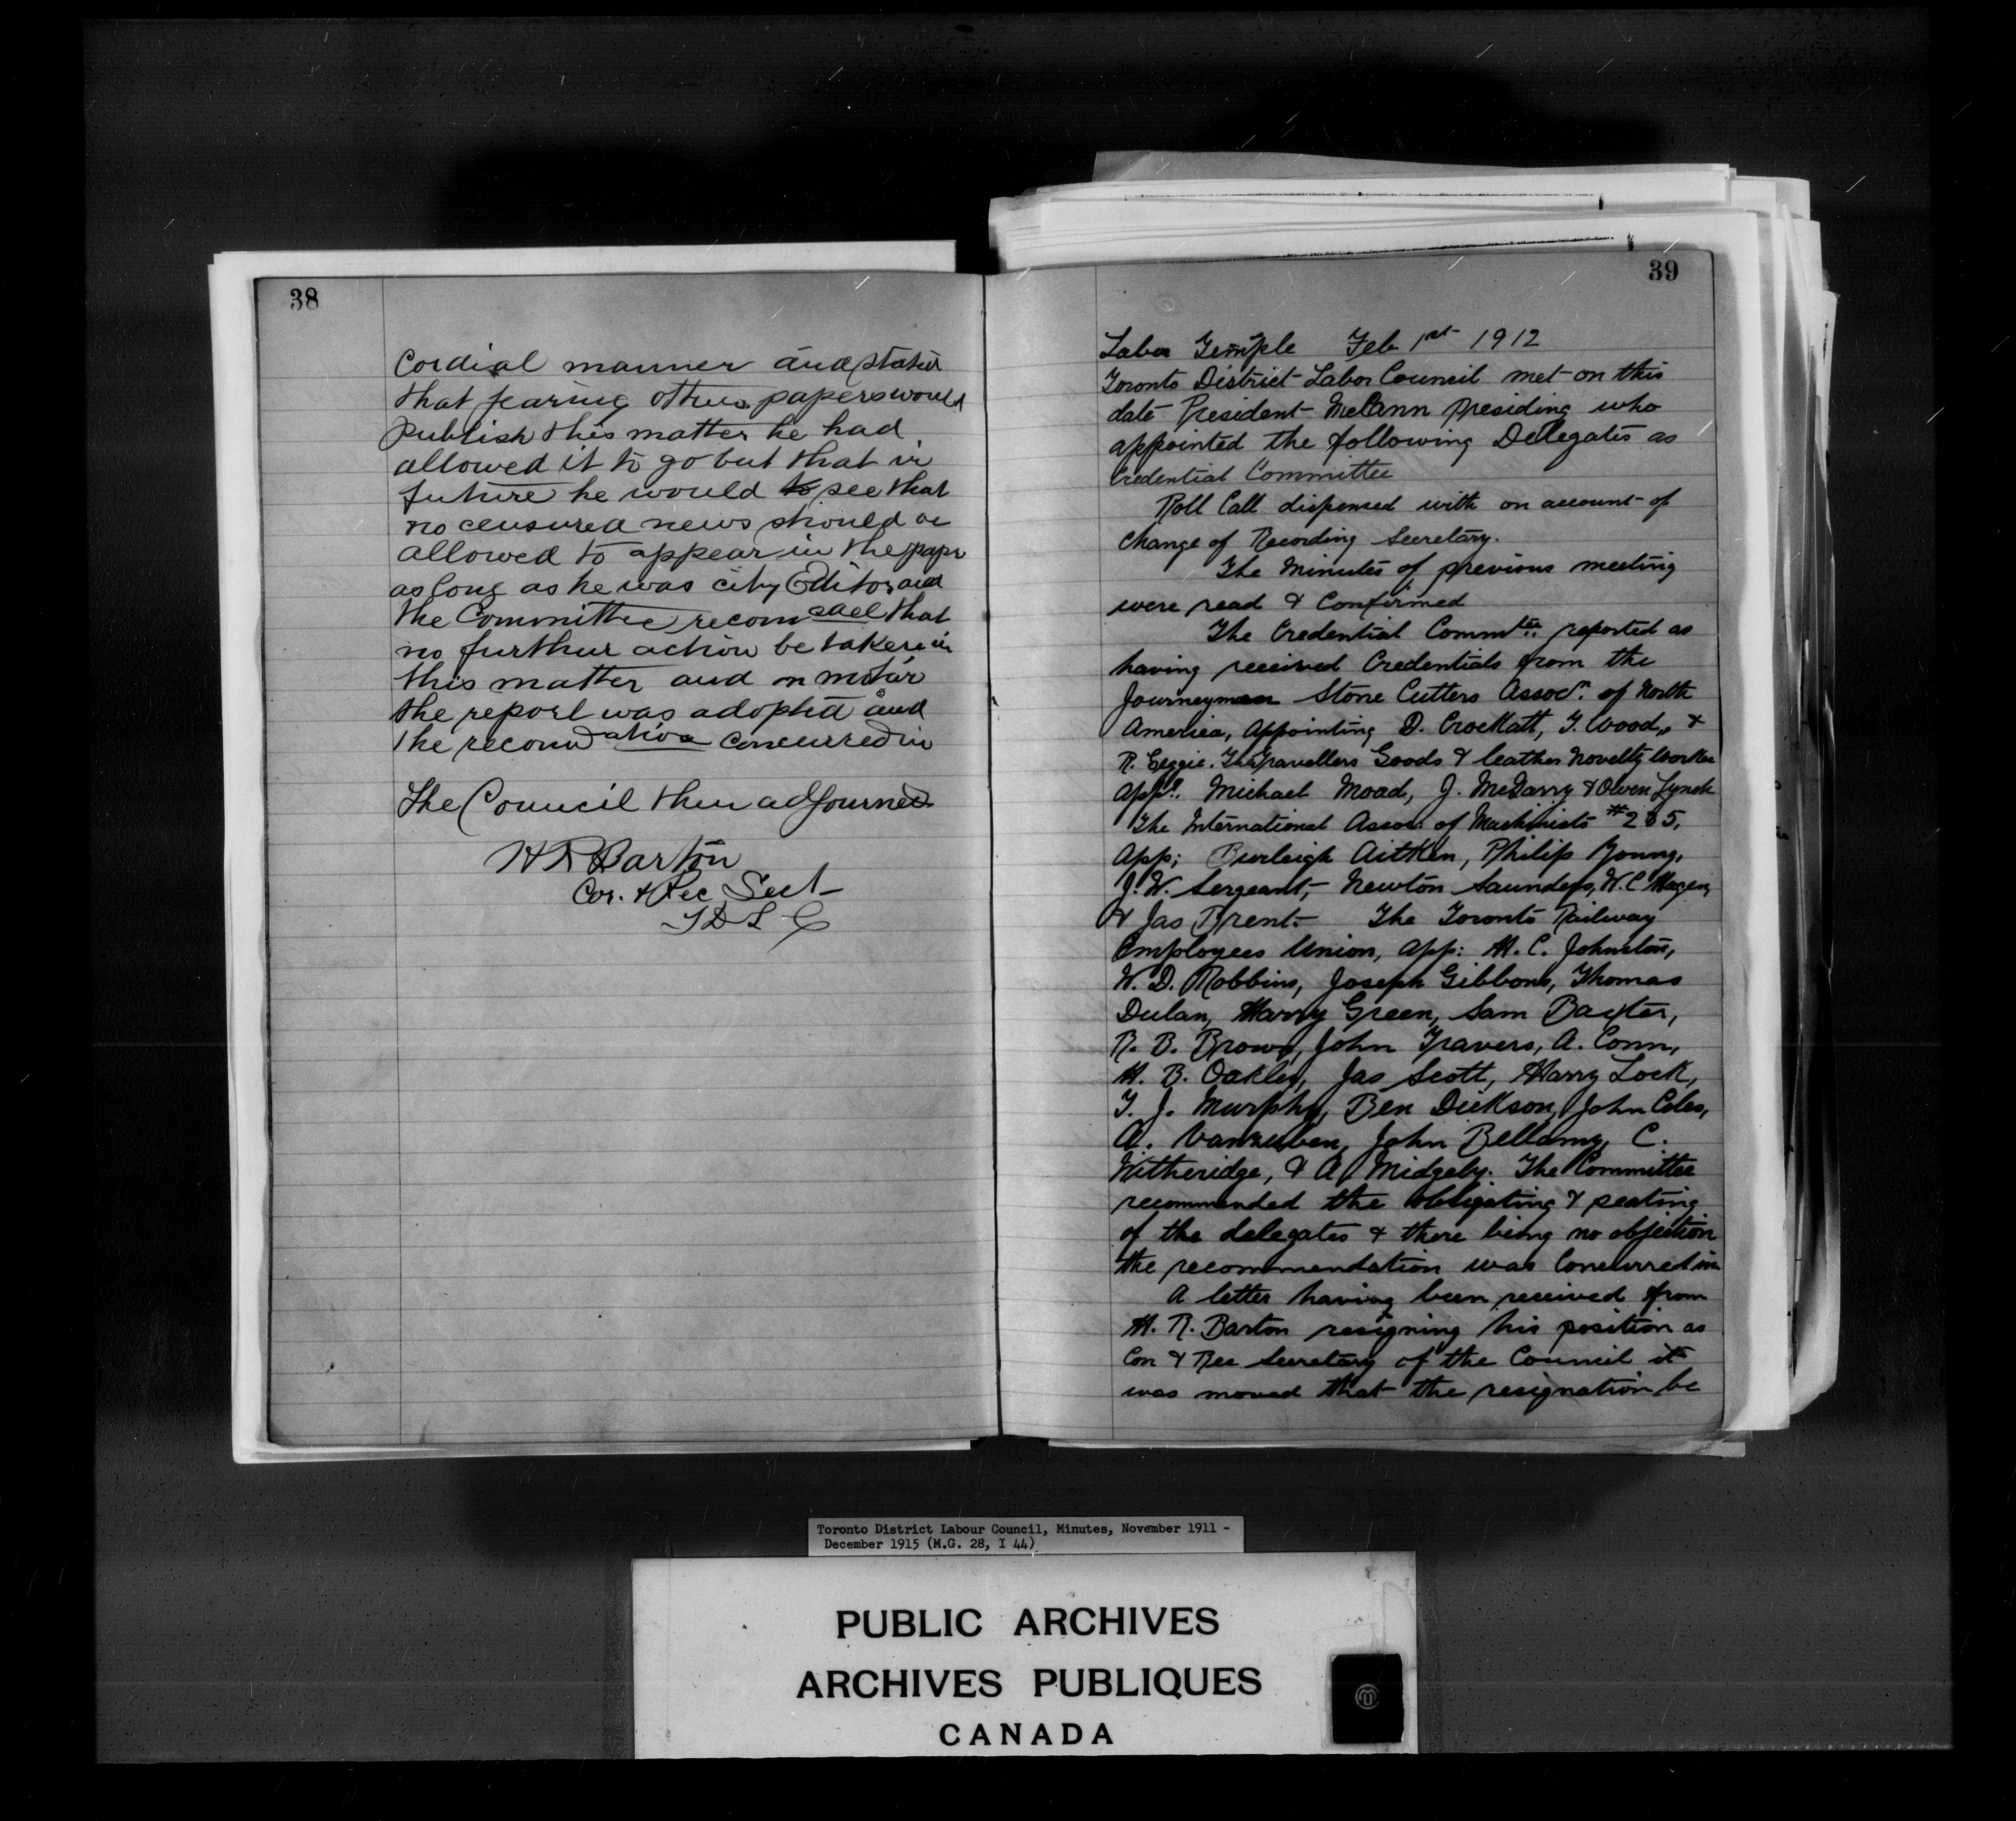 38
Cordial manner and stated
that fearing others papers would
publish this matter he had
allowed it to go but that in
future he would to see that
no censured news should be
allowed to appear in the paper
as long as he was city Editor and
the Committee recom
that
no further action be taken in
this matter and on motion
the report was adopted and
the recomdation concurred in
The Council then adjourned
H R Barton
Cor. & Rec Sect
T D L C
39
Labor Temple Feb 1st 1912
Toronto District Labor Council met on this
date President McCann presiding who
appointed the following Delegates as
Credential Committee
Roll Call dispensed with on account of
change of Recording Secretary.
The Minutes of previous meeting
were read & Confirmed
The Credential Commtee reported as
having received Credentials from the
Journeymen Stone Cutters Assocn. of North
America, appointing D. Crockatt, T. Wood, &
R. Geggie. The Travellers Goods & leather novelty worker
appd. Michael Moad, J. McGarry & Owen Lynch
The International Assoc. of Machinists #235,
app; Burleigh Aitken, Philip Young,
J. W. Sergeant, Newton Saunders, W. C
& Jas Brent. The Toronto Railway
Employees Union, app: H. C. Johnston,
W. D. Robbins, Joseph Gibbons, Thomas
Dulan, Harry Green, Sam Baxter,
R. B. Brown, John Travers, A. Conn,
H. B. Oakley, Jas Scott, Harry Lock,
T. J. Murphy, Ben Dickson, John Coles,
A. Vanzuben, John Bellamy, C.
Witheridge, & A Midgeby. The Committee
recommended the obligating & seating
of the delegates & there being no objection
the recommendation was concurred in
A letter having been received from
H. R. Barton resigning his position as
Cor & Rec Secretary of the Council it
was moved that the resignation be
Toronto District Labour Council, Minutes, November 1911 -
December 1915 (M.G. 28, I 44)
PUBLIC ARCHIVES
ARCHIVES PUBLIQUES
CANADA